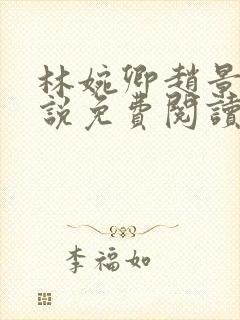 林婉卿趙景
說免費閱讀
李福如